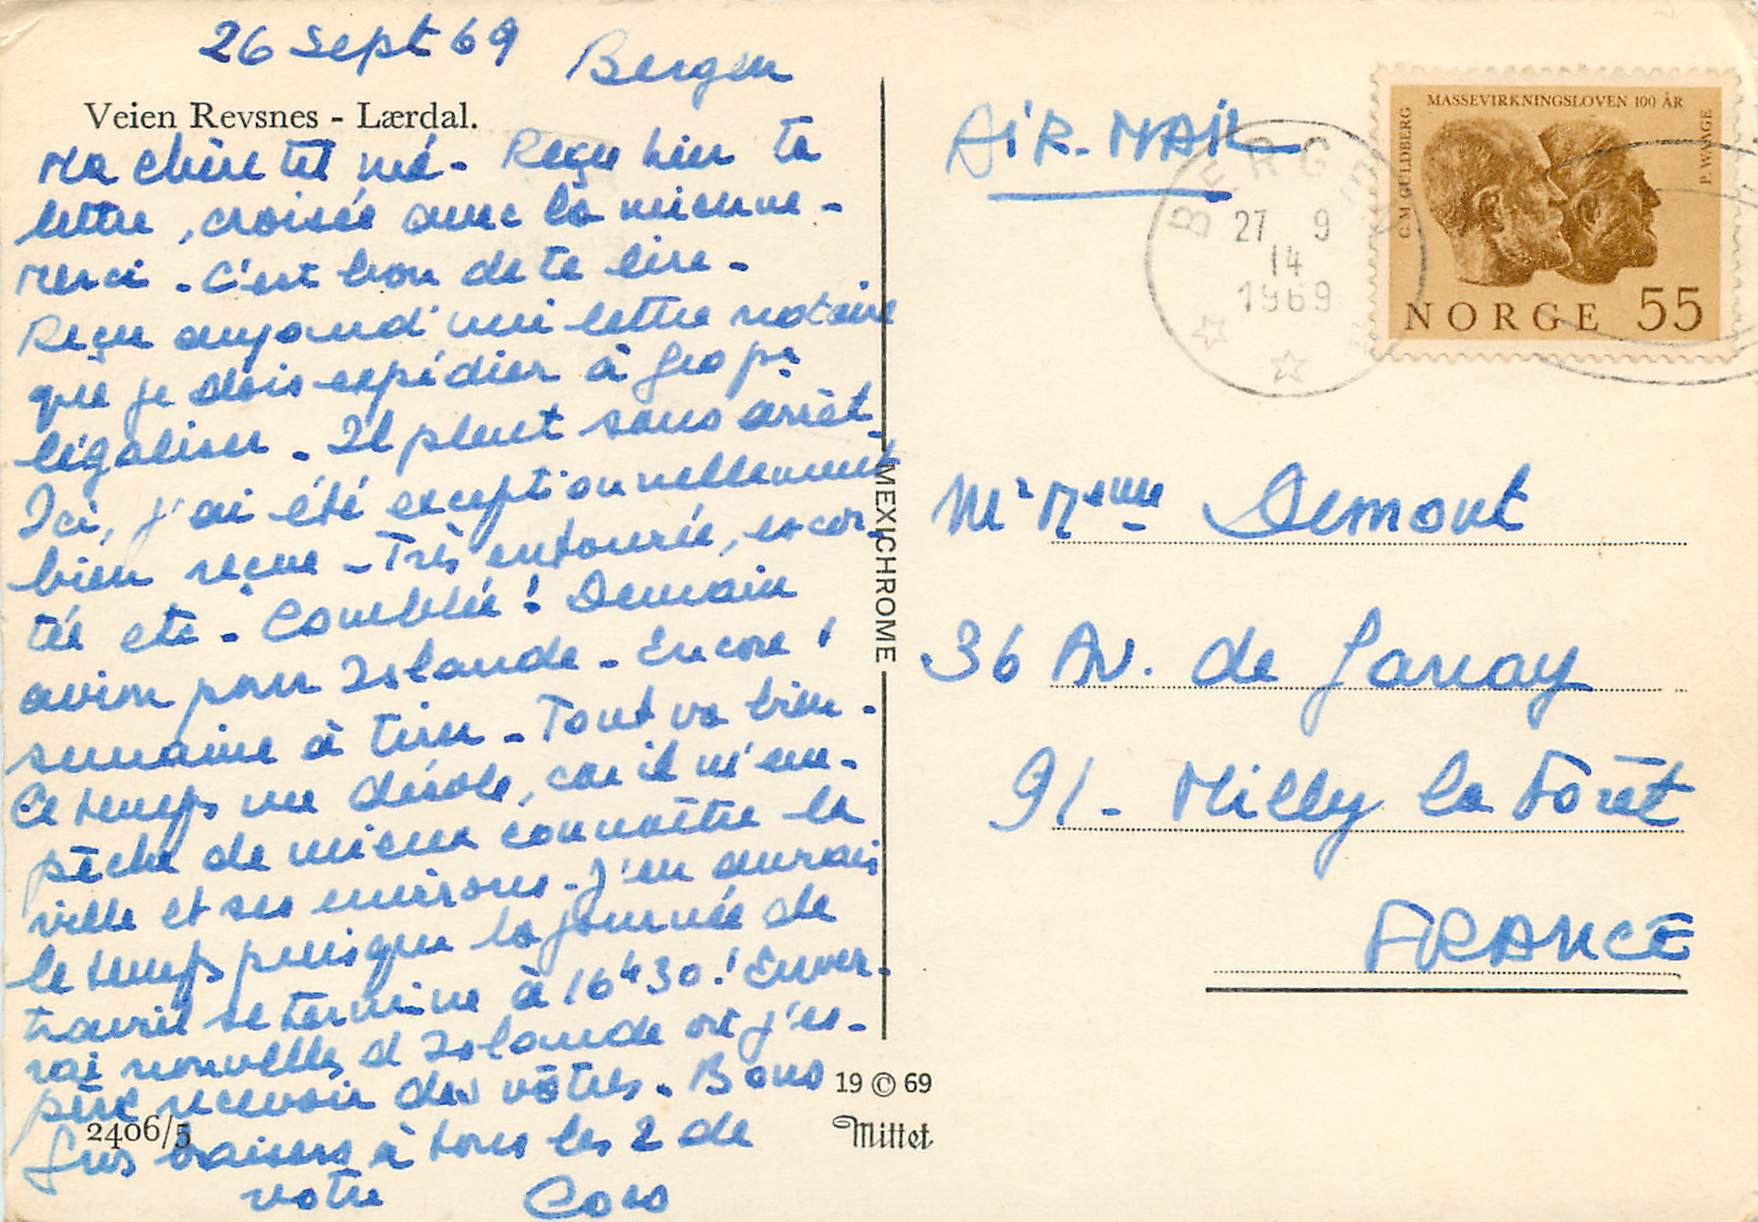 26 Sept 69 Bergen
Veien Revsnes - Lærdal.
Ma chère tit mé - Reçu hier ta
lettre, croisée avec la mienne -
Merci - C'est bon de te lire -
Reçu aujourd'hui lettre notaire
que je dois expédier à Geo pr
légaliser - Il pleut sans arrêt -
Ici, j'ai été exceptionnellement
bien reçue - Très entourée, escor-
tée etc - Comblée ! Demain
avion pour Islande - Encore 1
semaine à tirer - Tout va bien -
Ce temps me désole, car il m'em-
pêche de mieux connaître la
ville et ses environs - J'en aurais
le temps puisque la journée de
travail se termine à 16h30 ! Enver-
rai nouvelles d'Islande où j'es-
père recevoir des vôtres - Bons
Gros baisers à tous les 2 de
votre Coco
2406/5
MEXICHROME
19 © 69
Mittet
AIR-MAIL
BERGEN
27 9
14
1969
MASSEVIRKNINGSLOVEN 100 ÅR
C.M GULDBERG
P. WAAGE
NORGE 55
Mr Meme Demont
36 Av. de
91 - Milly la Forêt
FRANCE